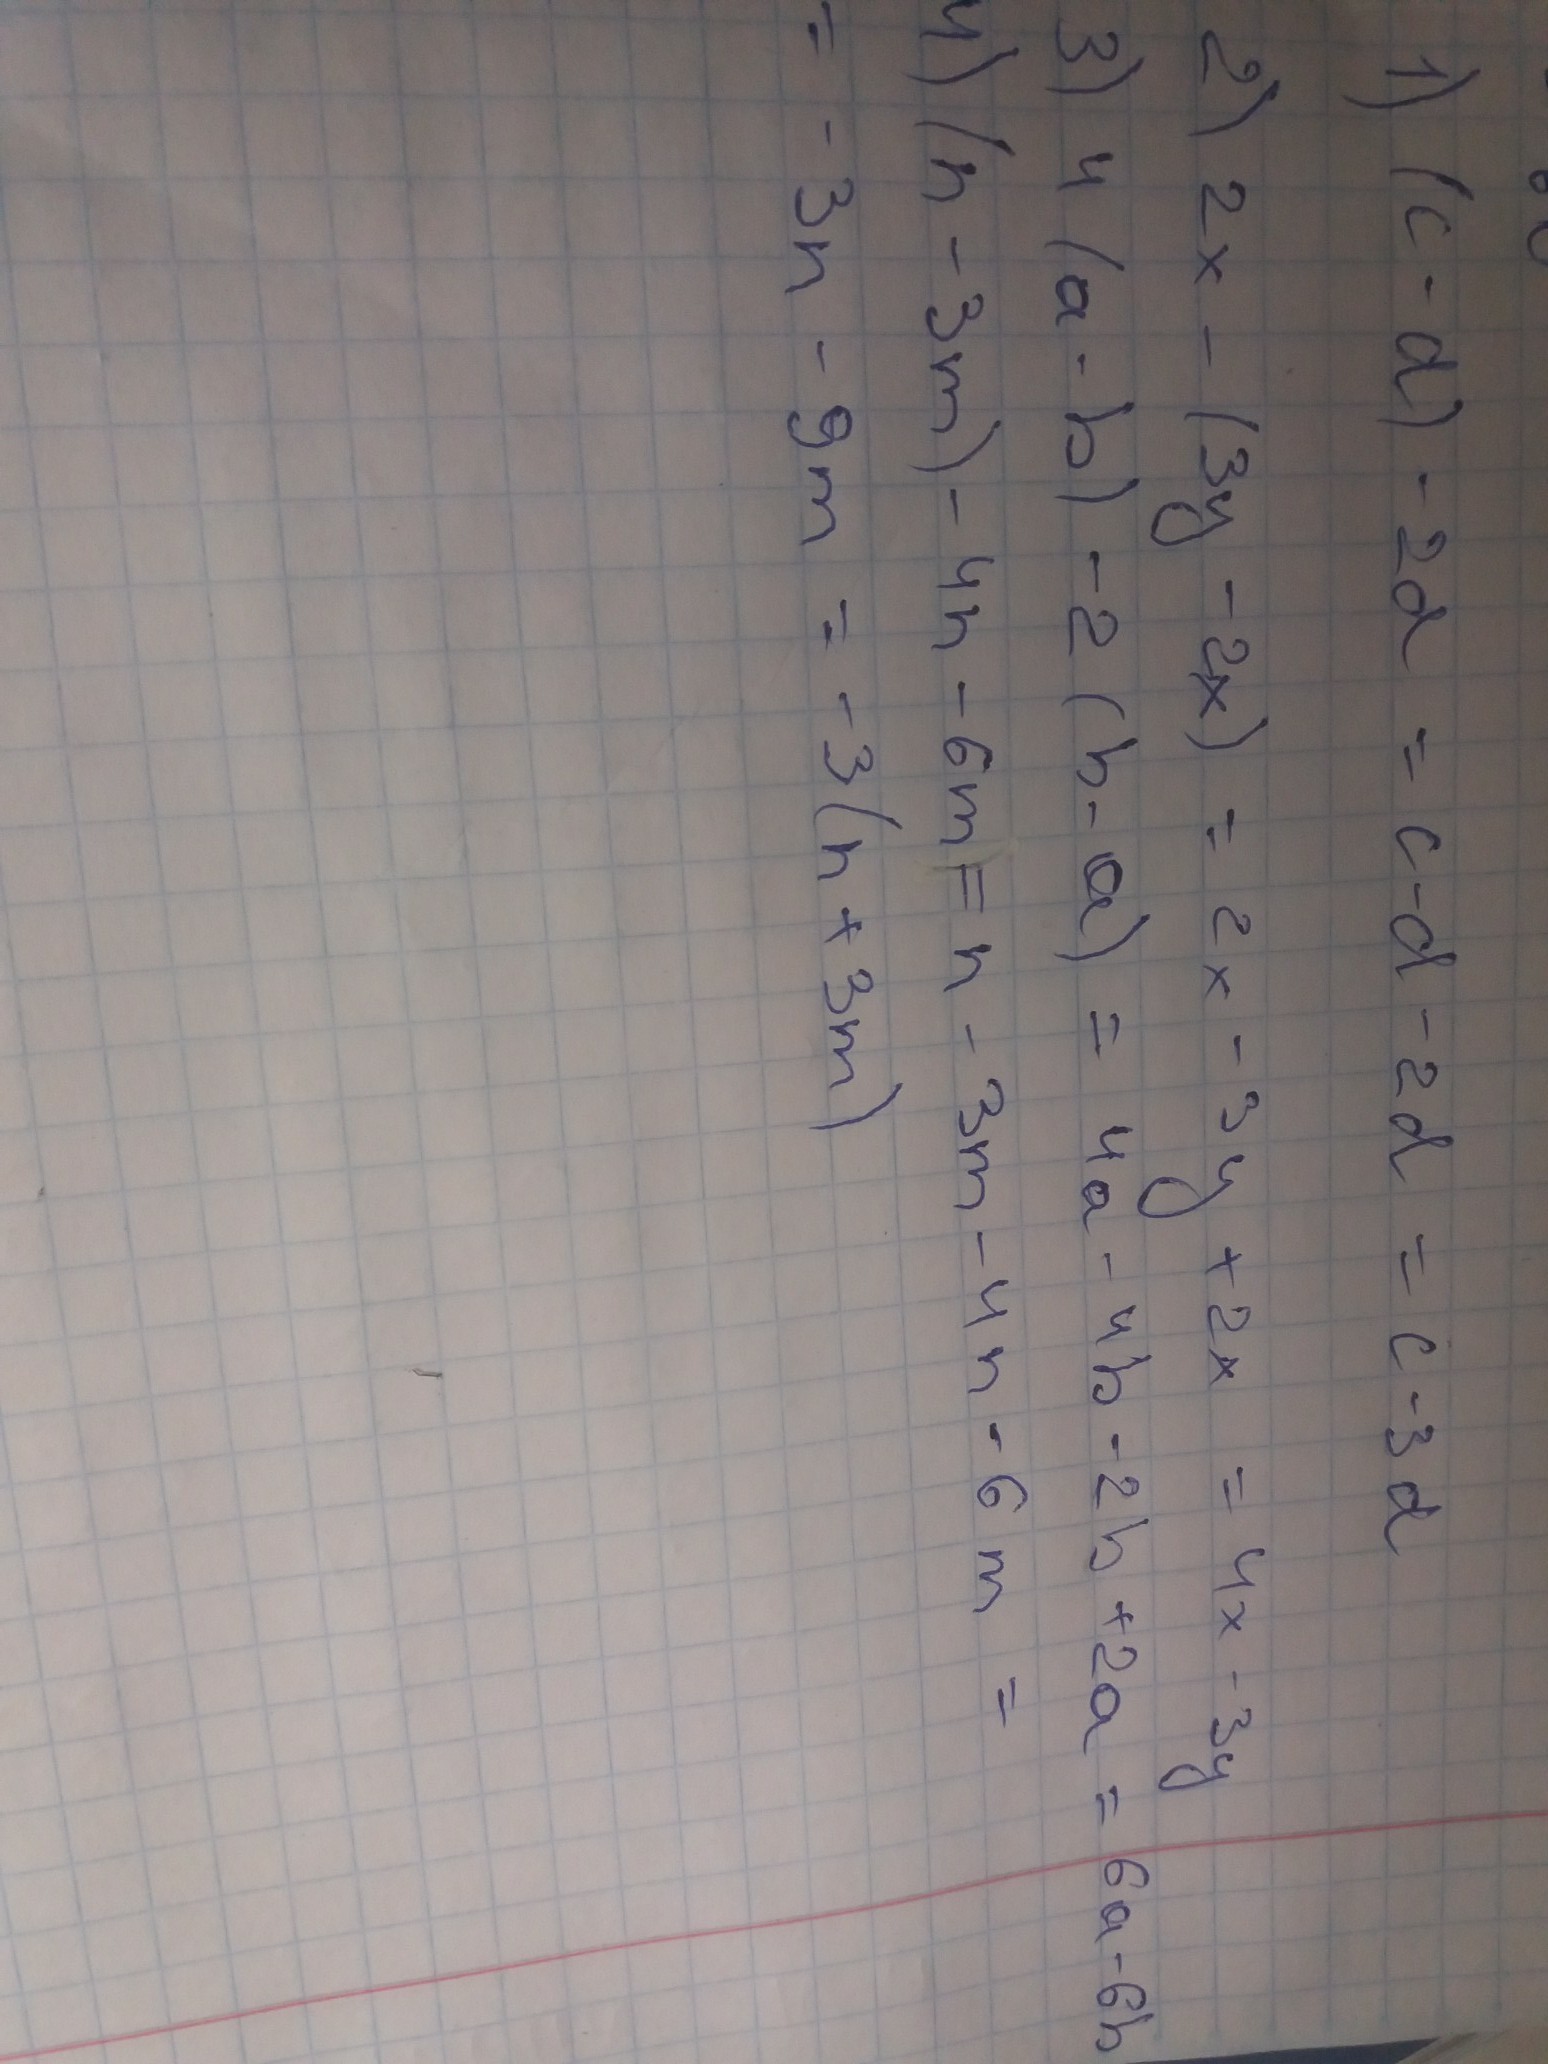 1) (c - d) - 2d = c - d - 2d = c - 3d
2) 2x - (3y - 2x) = 2x - 3y + 2x = 4x - 3y
3) 4 (a - b) - 2 (b - a) = 4a - 4b - 2b + 2a = 6a - 6b
4) (n - 3m) - 4n - 6m = n - 3m - 4n - 6m =
= - 3n - 9m = - 3 (n + 3m)